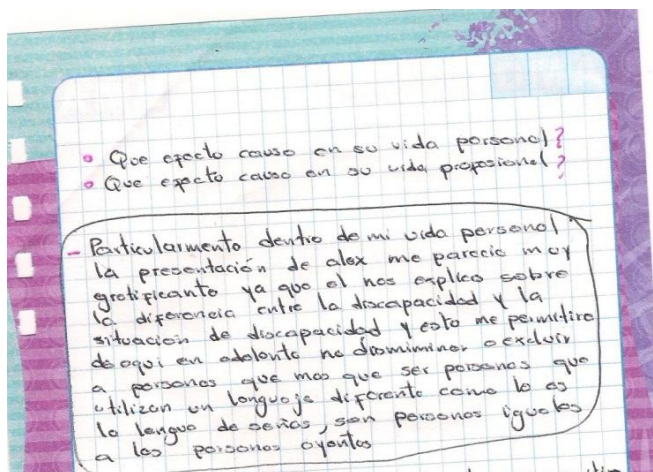 • Que efecto causo en su vida personal?
• Que efecto causo en su vida profosional?
- Particularmento dentro de mi vida personal
la presentación de alex me parecio muy
gratificante ya que el nos explico sobre
la diferencia entre la discapacidad y la
situacion de discapacidad y esto me permitira
de aqui en adelante no disminiminar o excluir
a personas que mas que ser personas que
utilizan un lenguaje diferente como lo es
la lengua de señas, son personas iguales
a las personas oyentes